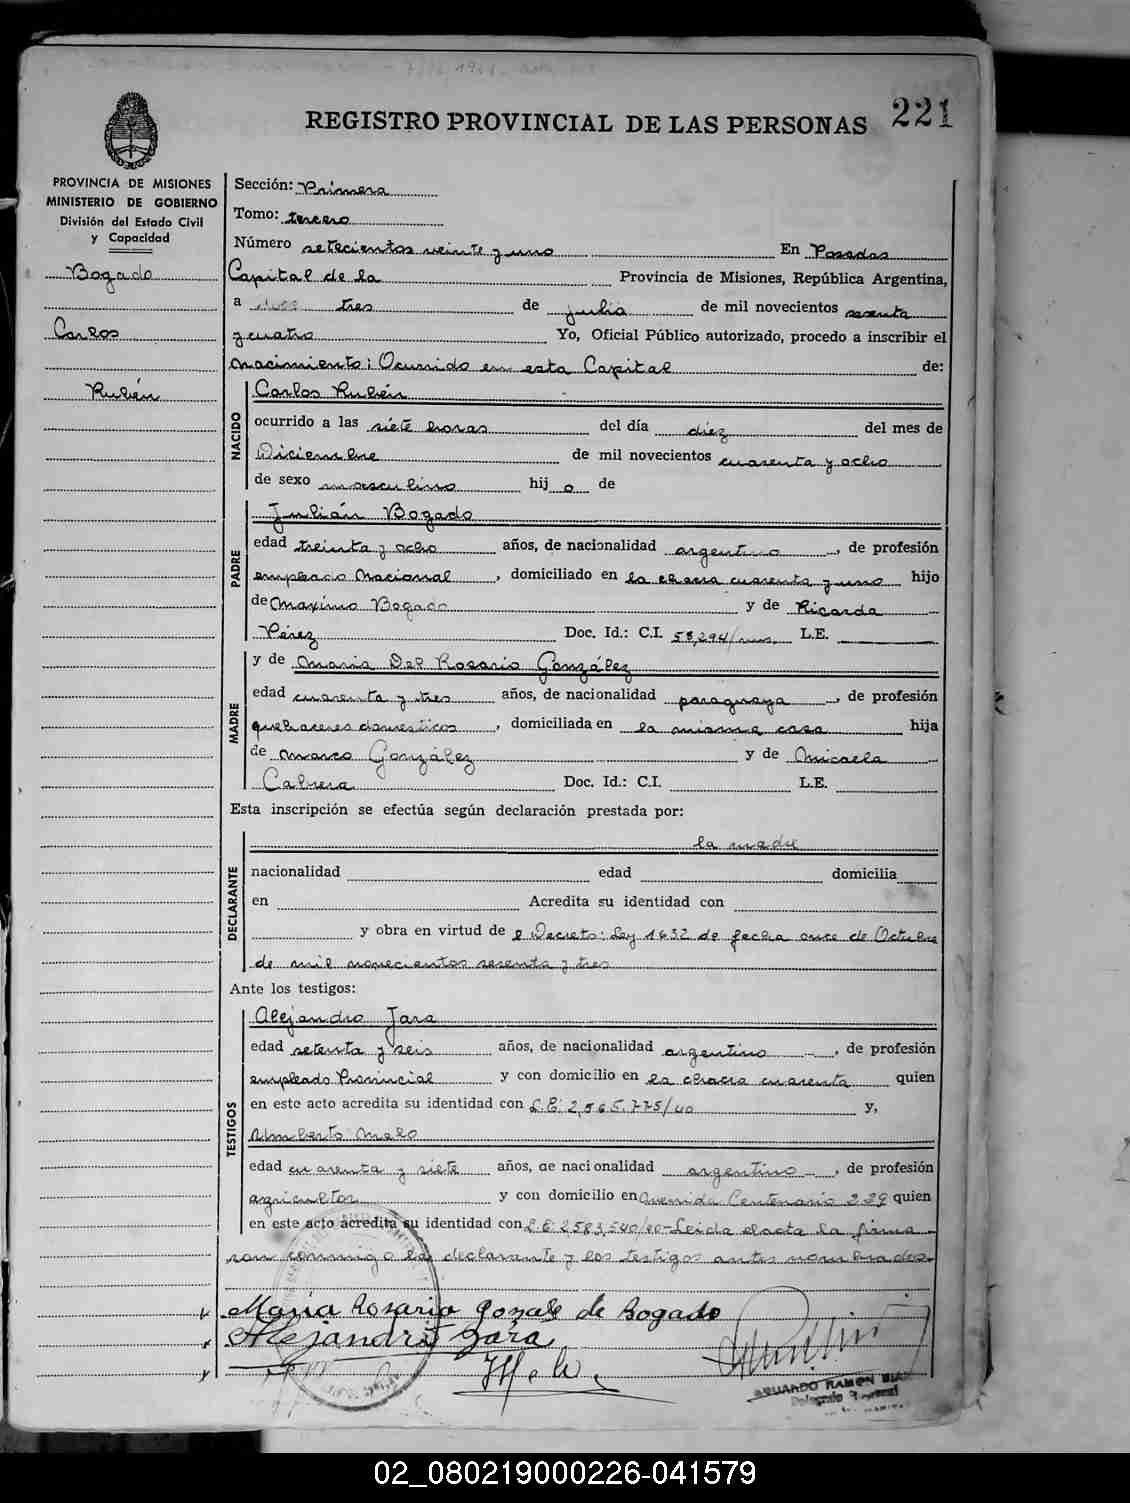 REGISTRO PROVINCIAL DE LAS PERSONAS 221
PROVINCIA DE MISIONES
MINISTERIO DE GOBIERNO
División del Estado Civil
y Capacidad
Bogado
Carlos
Rubén
Sección: Primera
Tomo: tercero
Número setecientos veinte y uno En Posadas
Capital de la Provincia de Misiones, República Argentina,
a tres de julio de mil novecientos sesenta
y cuatro Yo, Oficial Público autorizado, procedo a inscribir el
nacimiento: Ocurrido en esta Capital de:
NACIDO
Carlos Rubén
ocurrido a las siete horas del día diez del mes de
Diciembre de mil novecientos cuarenta y ocho
de sexo masculino hij o de
PADRE
Julián Bogado
edad treinta y ocho años, de nacionalidad argentino, de profesión
empleado Nacional, domiciliado en la chacra cuarenta y uno hijo
de Maximo Bogado y de Ricarda
Pérez Doc. Id.: C.I. 58,294/mns. L.E.
MADRE
y de Maria Del Rosario González
edad cuarenta y tres años, de nacionalidad paraguaya, de profesión
quehaceres domesticos, domiciliada en la misma casa hija
de Marco González y de Micaela
Cabrera Doc. Id.: C.I. L.E.
Esta inscripción se efectúa según declaración prestada por:
DECLARANTE
la madre
nacionalidad edad domicilia
en Acredita su identidad con
y obra en virtud de l Decreto: Ley 1432 de fecha once de Octubre
de mil novecientos sesenta y tres
Ante los testigos:
TESTIGOS
Alejandro Jara
edad setenta y seis años, de nacionalidad argentino, de profesión
empleado Provincial y con domicilio en la chacra cuarenta quien
en este acto acredita su identidad con L.E: 2,565.775/40 y,
Umberto Melo
edad cuarenta y siete años, de nacionalidad argentino, de profesión
agricultor y con domicilio en Avenida Centenario 229 quien
en este acto acredita su identidad con L.E: 2,583,540/40-Leida el acta la firma
ron conmigo la declarante y los testigos antes nombrados.
Maria Rosario Gonzale de Bogado
Alejandro Jara
EDUARDO RAMON
Delegado
02_080219000226-041579